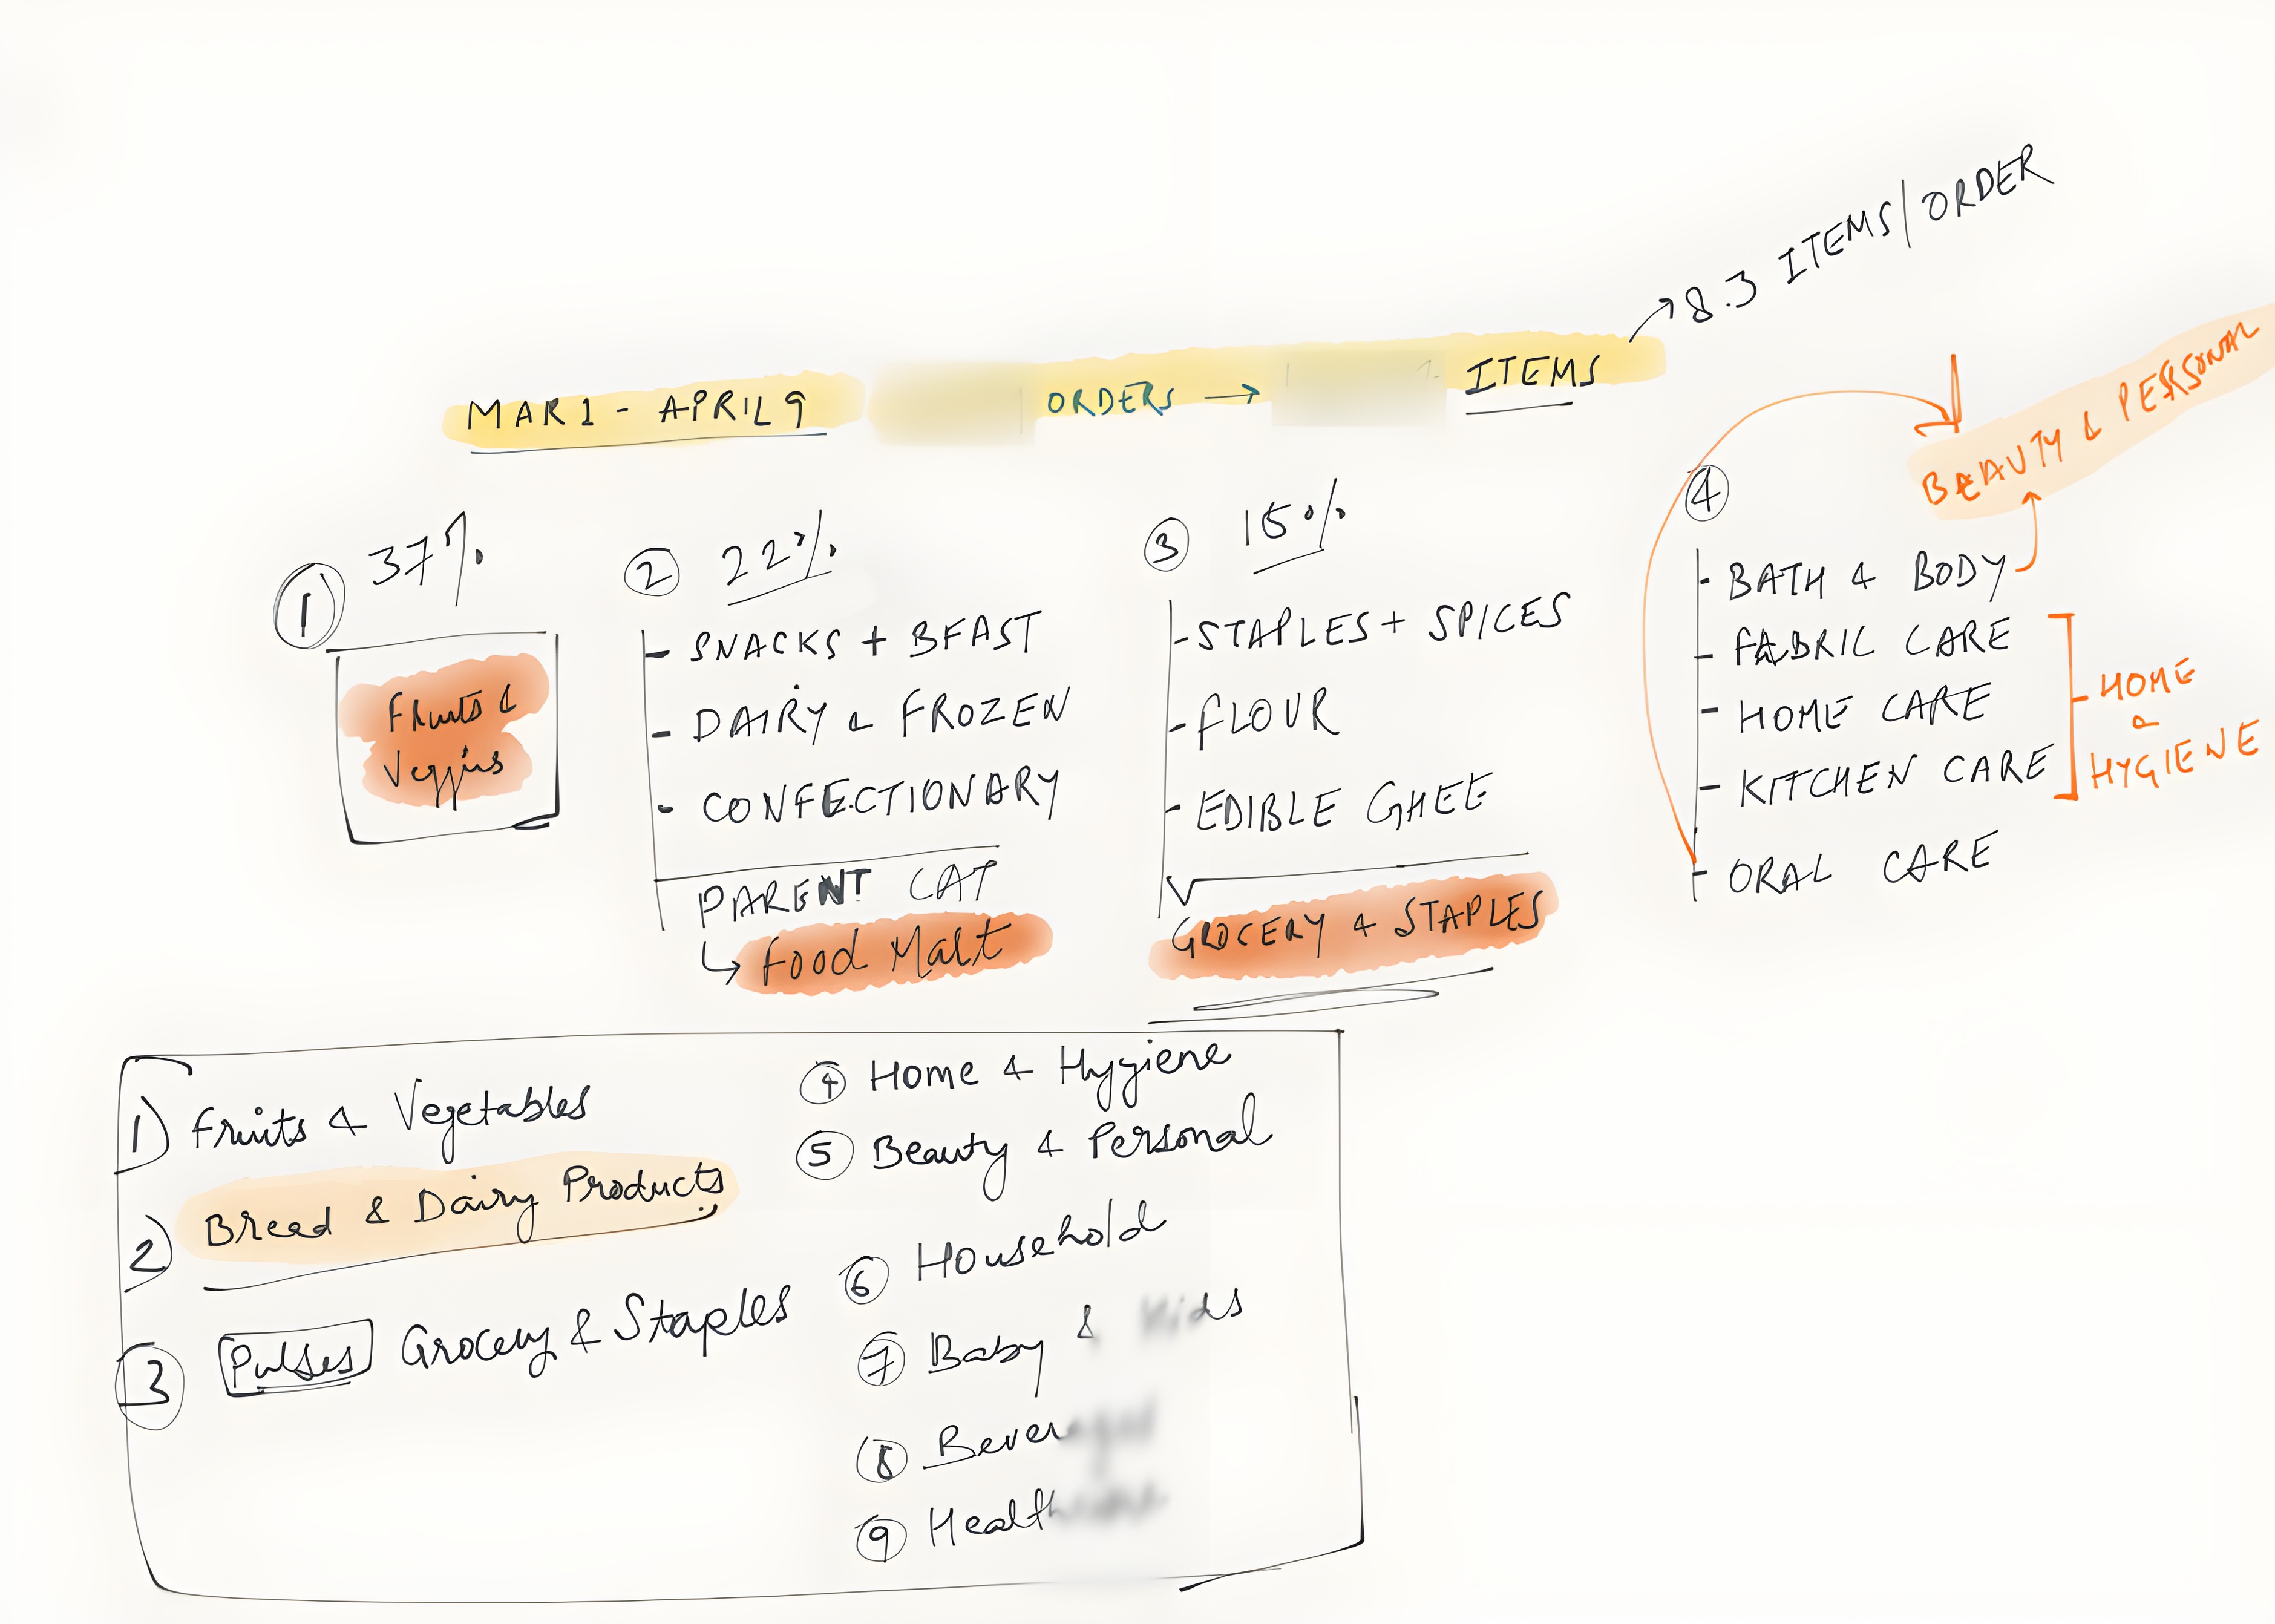 8.3 ITEMS/ORDER
MAR 1 - APRIL 9 ORDERS → ITEMS
① 37%
Fruits &
Veggies
② 22%
- SNACKS + BFAST
- DAIRY & FROZEN
- CONFECTIONARY
PARENT CAT
↳ Food Mart
③ 15%
- STAPLES + SPICES
- FLOUR
- EDIBLE GHEE
GROCERY & STAPLES
④
BEAUTY & PERSONAL
- BATH & BODY
- FABRIC CARE
- HOME CARE
- KITCHEN CARE
- ORAL CARE
HOME
&
HYGIENE
1) Fruits & Vegetables
2) Bread & Dairy Products
③ Pulses Grocery & Staples
④ Home & Hygiene
⑤ Beauty & Personal
⑥ Household
⑦ Baby &
⑧
⑨